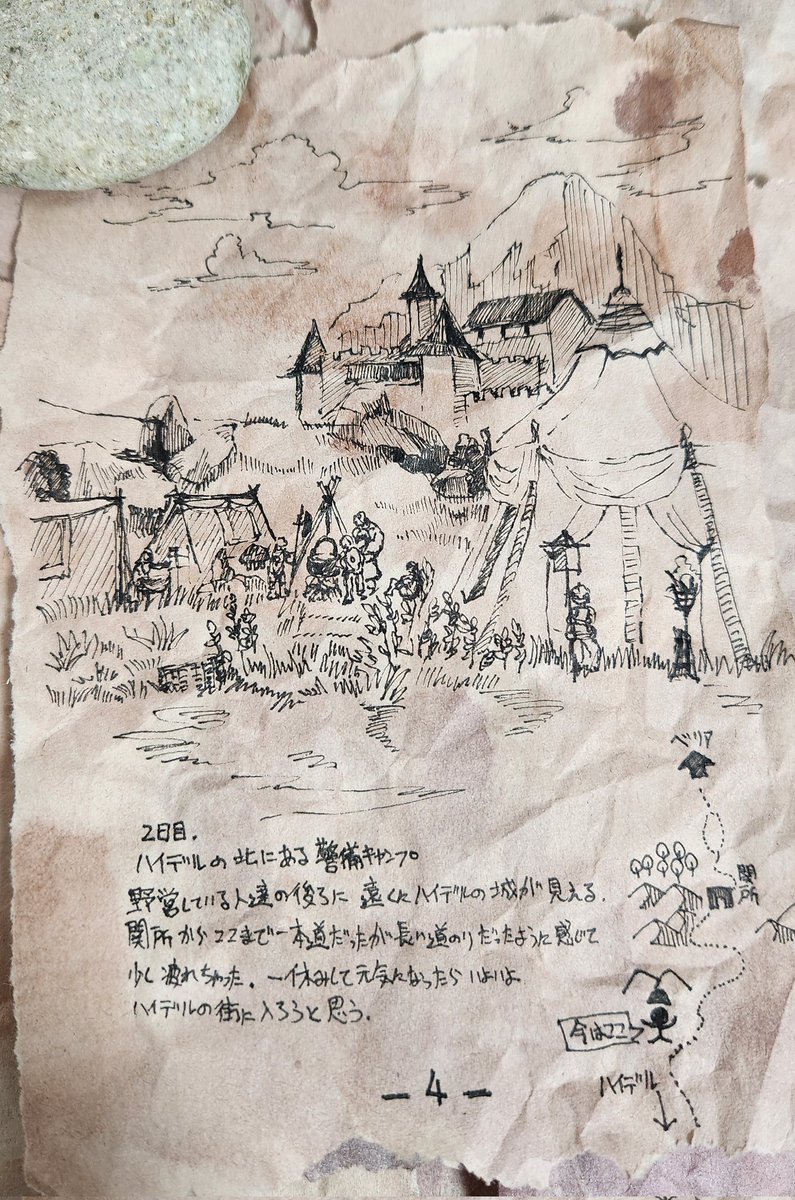 2日目.
ハイデルの北にある警備キャンプ
野営している人達の後ろに遠くにハイデルの城が見える.
関所からココまで一本道だったが長い道のりだったように感じて
少し疲れちゃった. 一休みして元気になったらいよいよ
ハイデルの街に入ろうと思う.
ベリア
関所
今はココ
ハイデル
- 4 -